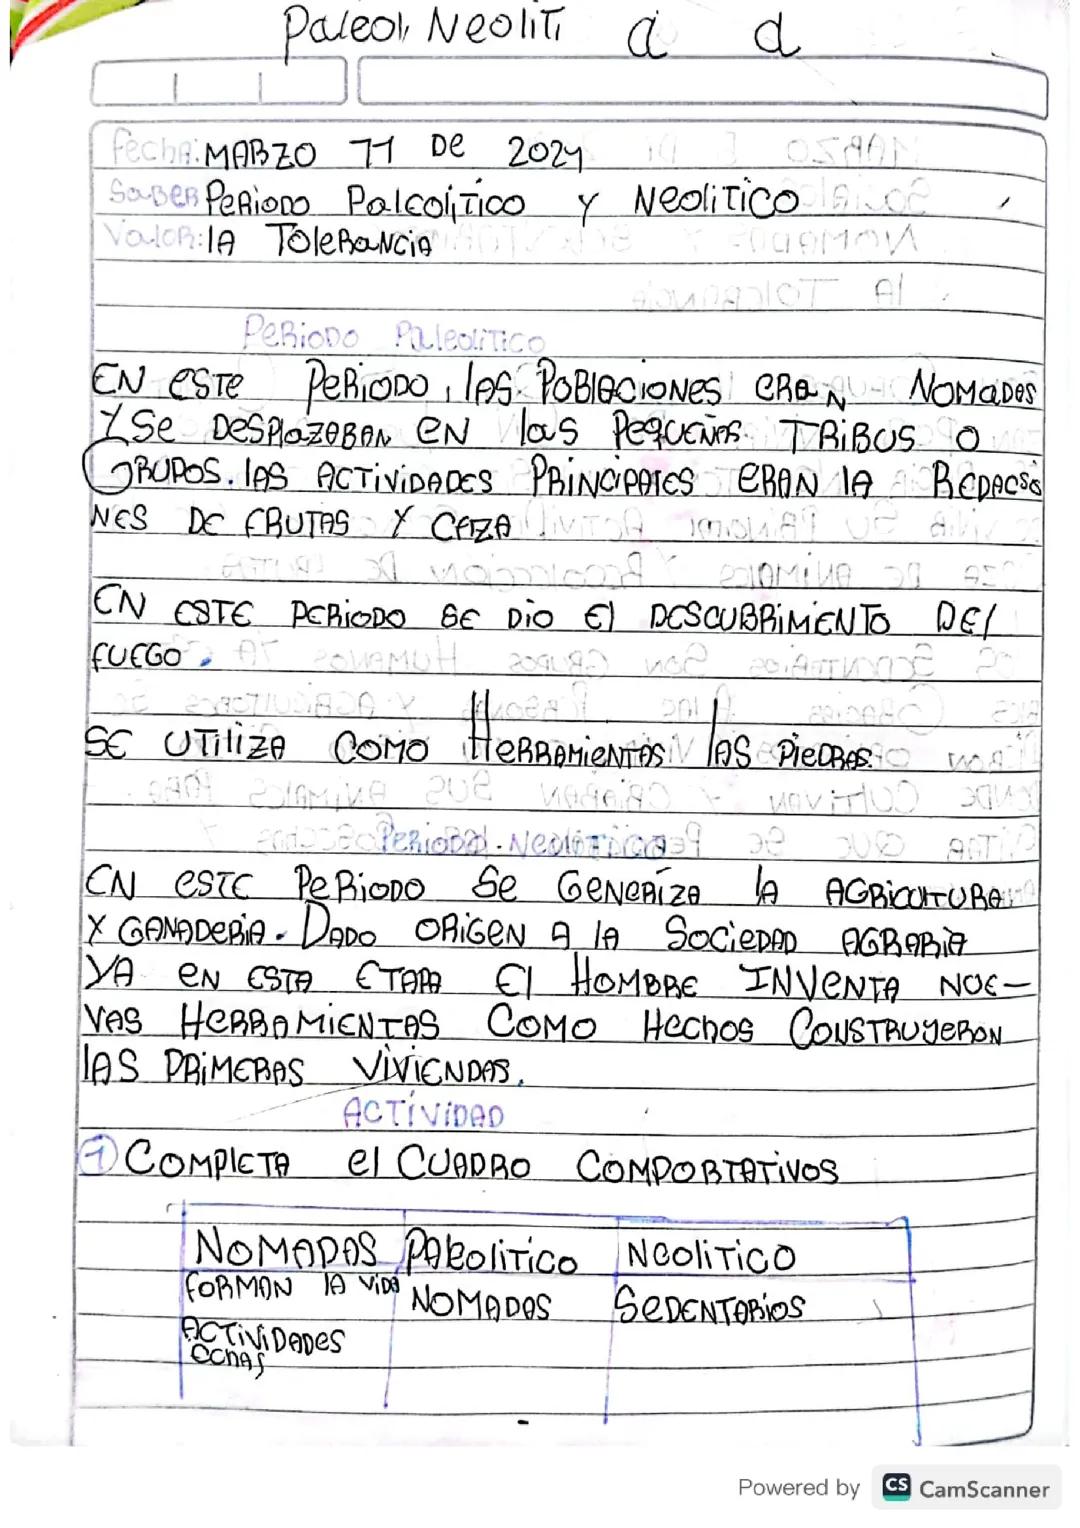 Paleol, Neoliti a d
fecha: MARZO 11 De 2024
Saber Periodo Paleolitico y Neolitico
Valor: lA ToleRaNCiA
Periodo Paleolitico
EN este Periodo, las Poblaciones eran Nomades
Y se Desplazaban en las Pequeñas Tribus o
Grupos. las Actividades Principales eran la Redacsio
nes de frutas y Caza
En este periodo se dio el descubrimiento del
fuego.
Se utiliza como Herramientas las Piedras.
Periodo. Neolitico
En este Periodo se Generiza la Agricultura
y Ganaderia. Dado origen a la Sociedad agraria
ya en esta etapa el Hombre Inventa nue-
vas Herramientas como Hechos Construyeron
las primeras viviendas.
ACTiViDAD
1 Completa el Cuadro Comportativos
Nomadas Paleolitico Neolitico
forman la vida Nomadas Sedentarios
Actividades